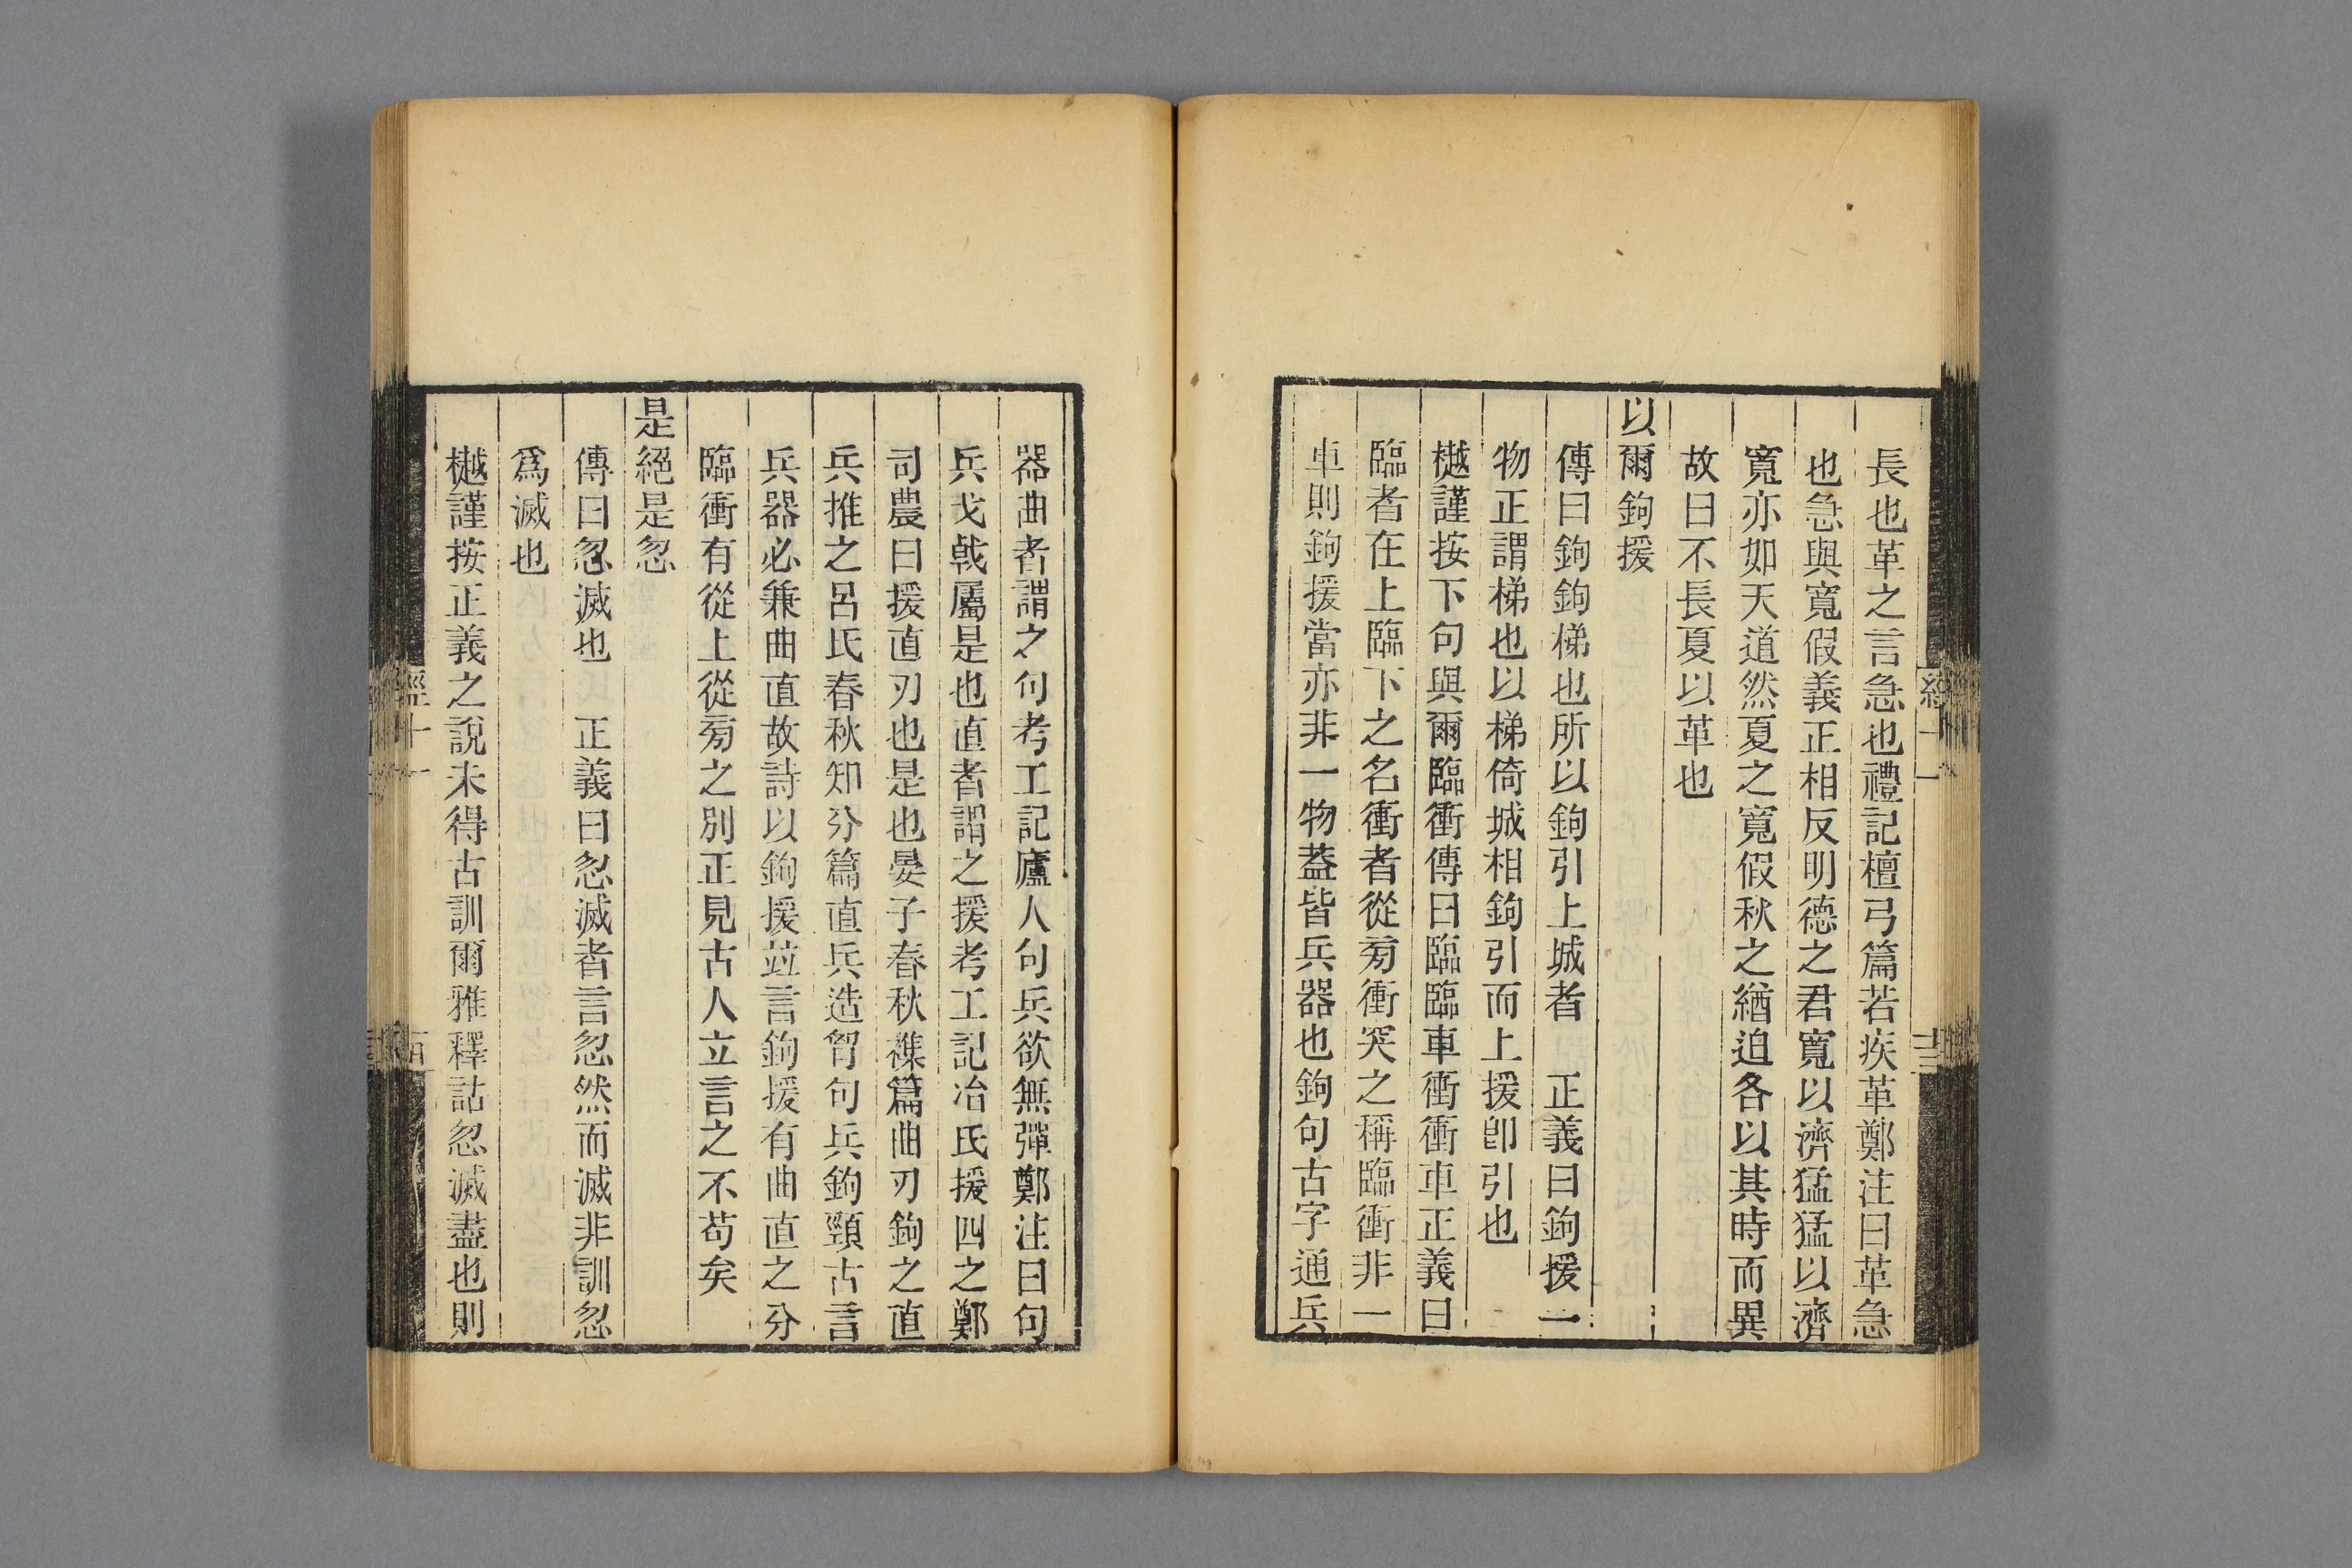 長也革之言急也禮記檀弓篇若疾革鄭注曰革急
也急與寬假義正相反明德之君寬以濟猛猛以濟
寬亦如天道然夏之寬假秋之緧迫各以其時而異
故曰不長夏以革也
以爾鉤援
傳曰鉤鉤梯也所以鉤引上城者　正義曰鉤援一
物正謂梯也以梯倚城相鉤引而上援卽引也
樾謹按下句與爾臨衝傳曰臨臨車衝衝車正義曰
臨者在上臨下之名衝者從旁衝突之稱臨衝非一
車則鉤援當亦非一物葢皆兵器也鉤句古字通兵
器曲者謂之句考工記廬人句兵欲無彈鄭注曰句
兵戈戟屬是也直者謂之援考工記冶氏援四之鄭
司農曰援直刃也是也晏子春秋襍篇曲刃鉤之直
兵推之呂氏春秋知分篇直兵造胷句兵鉤頸古言
兵器必兼曲直故詩以鉤援竝言鉤援有曲直之分
臨衝有從上從旁之別正見古人立言之不苟矣
是絕是忽
傳曰忽滅也　正義曰忽滅者言忽然而滅非訓忽
爲滅也
樾謹按正義之說未得古訓爾雅釋詁忽滅盡也則
經十一